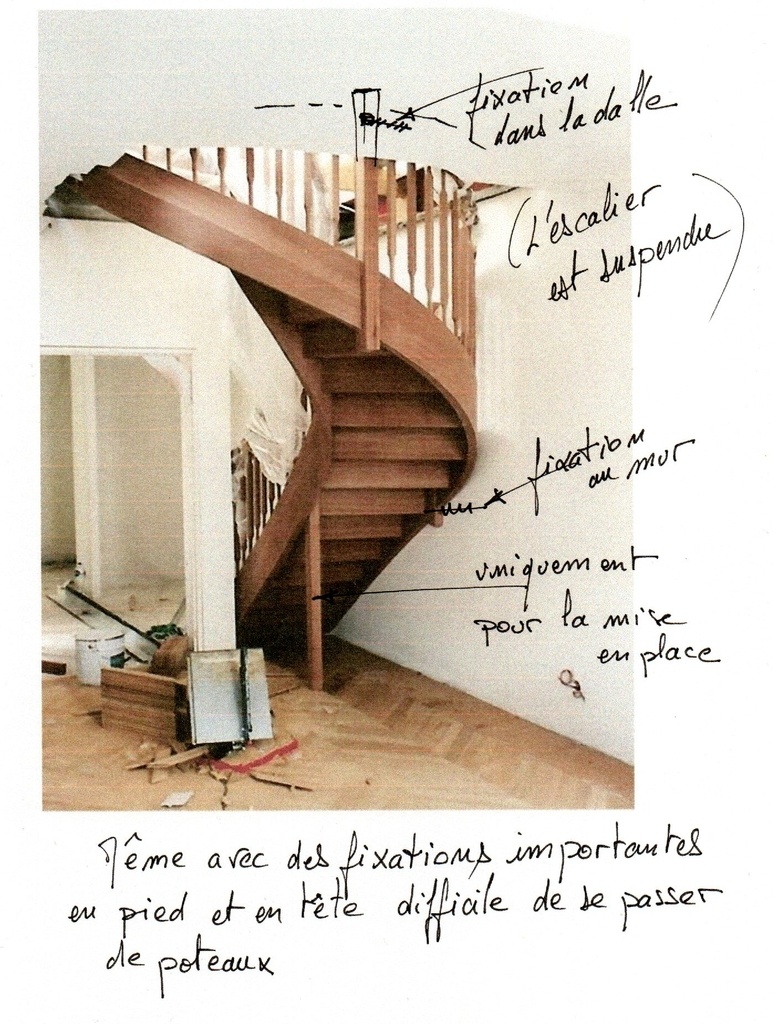 fixation
dans la dalle
(L'escalier
est suspendu)
fixation
au mur
uniquement
pour la mise
en place
Même avec des fixations importantes
en pied et en tête difficile de se passer
de poteaux